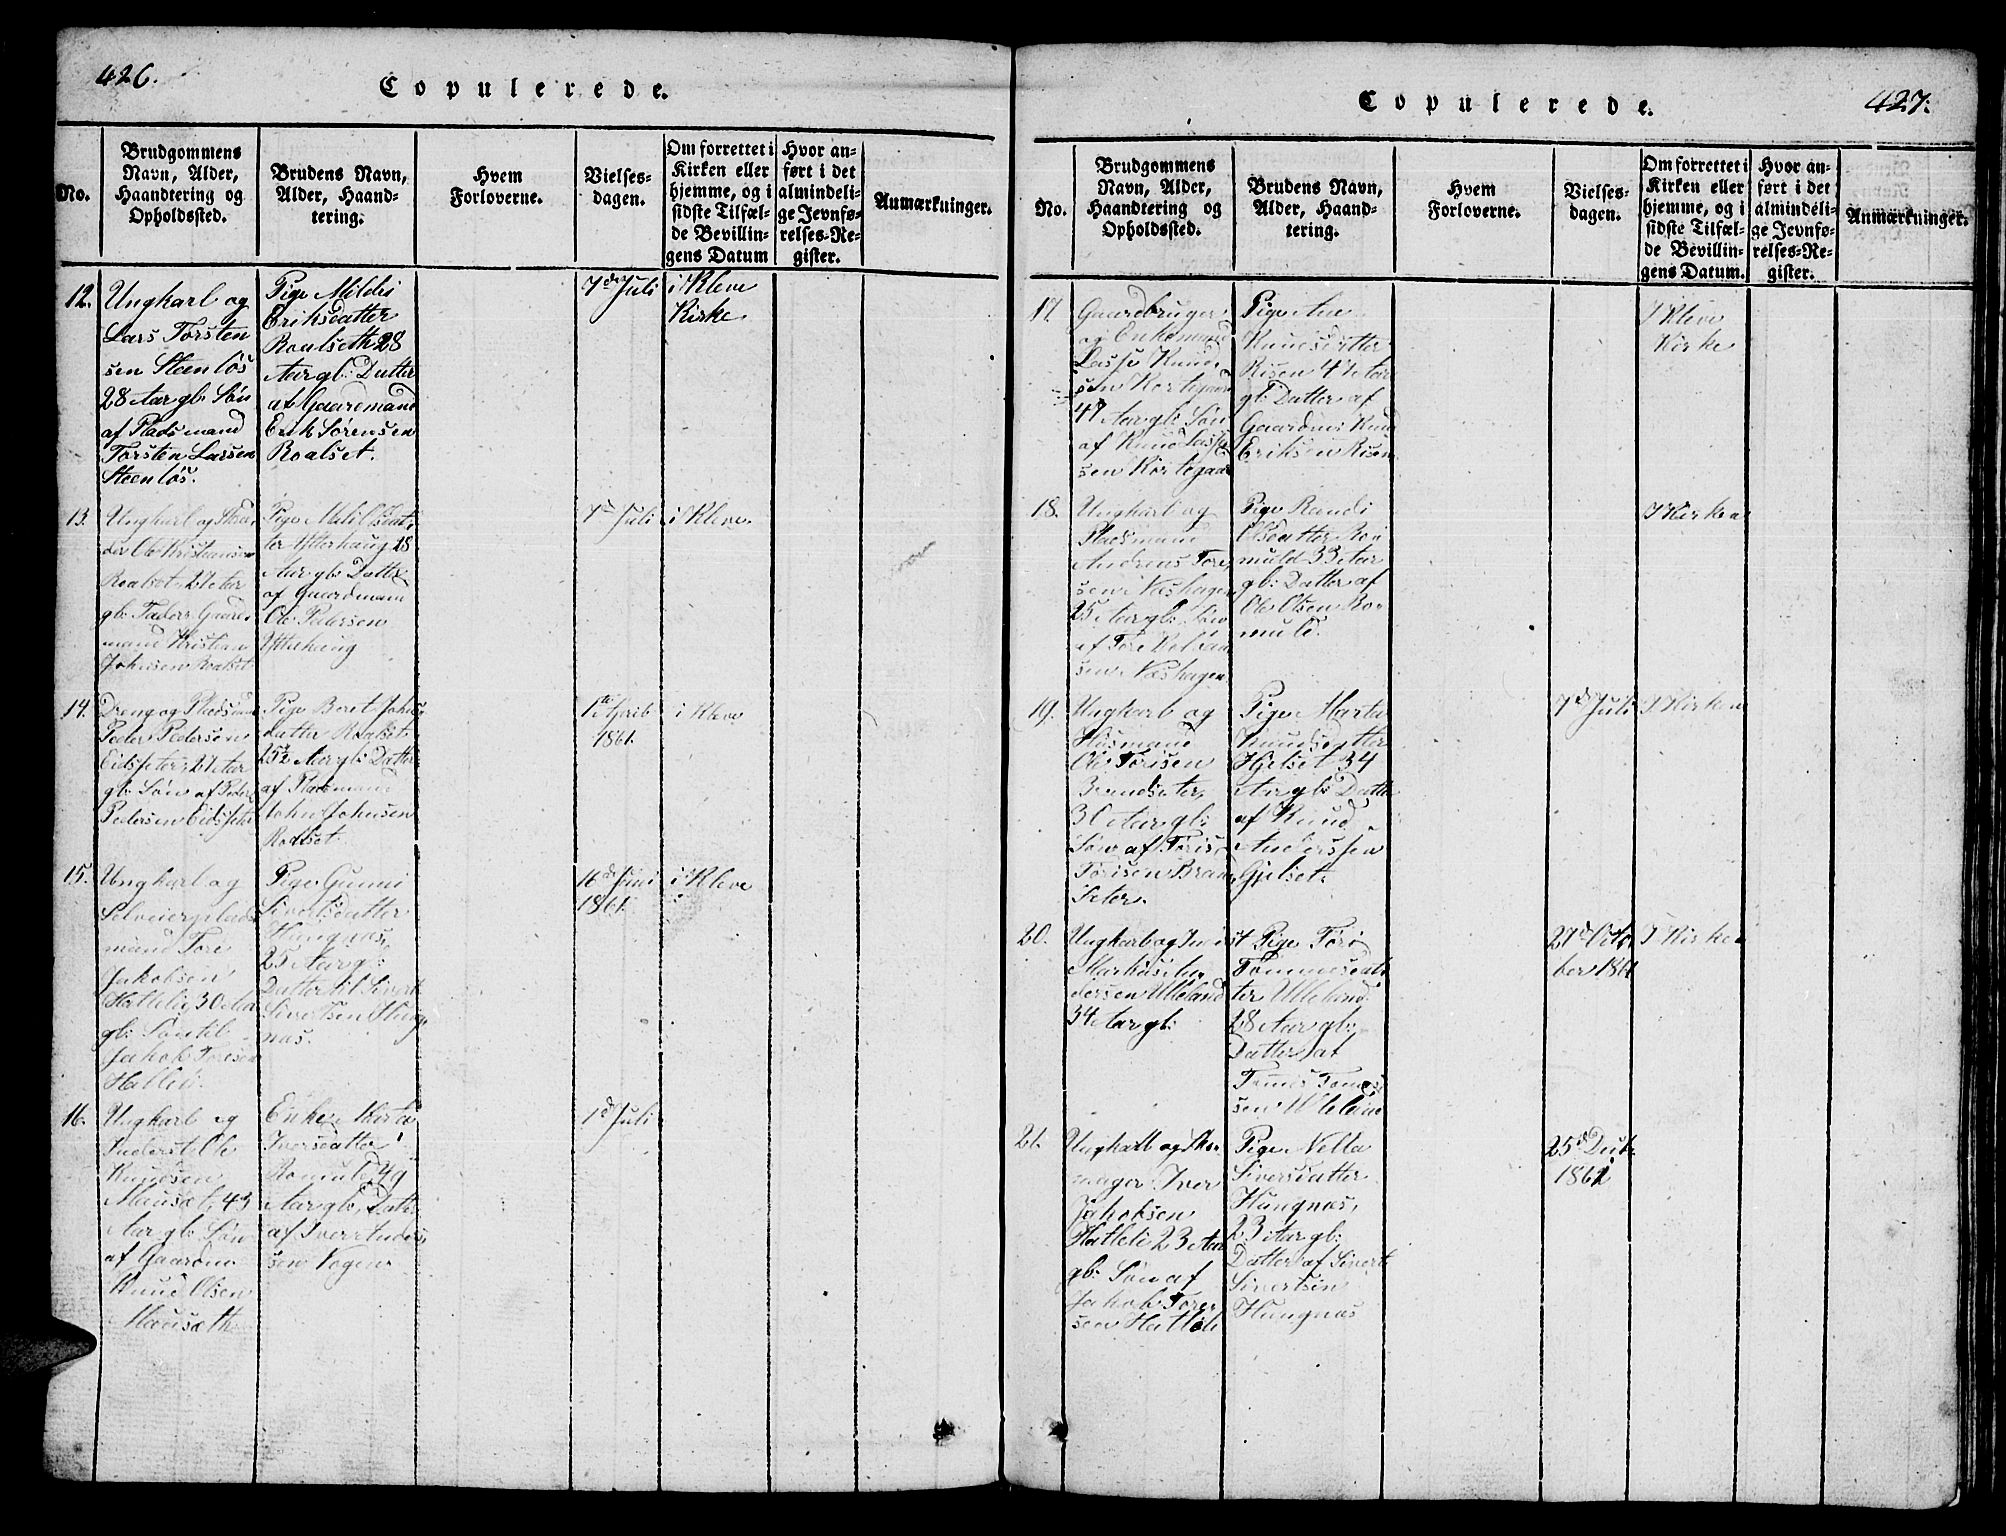 426.
Copulerede.
No.
Brudgommens
Navn, Alder,
Haandtering og
Opholdssted.
Brudens Navn,
Alder, Haand-
tering.
Hvem
Forloverne.
Vielses-
dagen.
Om forrettet i
Kirken eller
hjemme, og i
sidste Tilfæl-
de Bevillin-
gens Datum
Hvor an-
ført i det
almindeli-
ge Jevnfø-
relses-Re-
gister.
Anmærkninger.
12.
Ungkarl og
Lars Torsten
sen Steenløs
28 Aar gl: Søn
af Pladsmand
Torsten Larsen
Steenløs.
Pige Mildri
Eriksdatter
Roalseth 28
Aar gl: Datter
af Gaardmand
Erik Sørensen
Roalset.
7de Juli
i Kleve
Kirke
13.
Ungkarl og
Ole Kristiansen
Roalset 27 Aar
gl: Faders Gaard
mand Kristian
Johnsen Roalset
Pige Mali Olsdat
ter Ytterhaug 28
Aar gl: Datter
af Gaardmand
Ole Pedersen
Ytterhaug
7de Juli
i Kleve
14.
Dreng og Pladsmand
Peder Pedersen
Eidsæter 27 Aar
gl: Søn af Peder
Pedersen Eidsæter
Pige Beret Johns
datter Roalset
25½ Aar gl: Datter
af Pladsmand
John Johnsen
Roalset
1te April
1861.
i Kleve
15.
Ungkarl og
Selveierplads
mand Tore
Jakobsen
Hatleli 30 Aar
gl: Søn til
Jakob Toresen
Hatleli.
Pige Gunni
Sivertsdatter
Hungnæs,
25 Aar gl:
Datter til Sivert
Sivertsen Hung
næs.
16de Juni
1861
i Kleve
16.
Ungkarl og
Inderst Ole
Knudsen
Mausæt, 43
Aar gl: Søn
af Gaardm
Knud Olsen
Mausæth
Enke Marta
Iversdatter
Romuld 49
Aar gl: Datter
af Iver Anders
sen Vogen
1de Juli
427.
Copulerede.
No.
Brudgommens
Navn, Alder,
Haandtering og
Opholdssted.
Brudens Navn,
Alder, Haand-
tering.
Hvem
Forloverne.
Vielses-
dagen.
Om forrettet i
Kirken eller
hjemme, og i
sidste Tilfæl-
de Bevillin-
gens Datum.
Hvor an-
ført i det
almindeli-
ge Jevnfø-
relses-Re-
gister.
Anmærkninger.
17.
Gaardbruger
og Enkemand
Lasse Knud
sen Kortegaard
47 Aar gl: Søn
af Knud Lasse
sen Kortegaard
Pige Ane
Knudsdatter
Risen 41 Aar
gl: Datter af
Gaardm Knud
Eriksen Risen
I Kleve
Kirke
18.
Ungkarl og
Pladsmand
Andreas Tore
sen Næshagen
25 Aar gl: Søn
af Tore
sen Næshagen
Pige Randi
Olsdatter Ro
muld 33 Aar
gl: Datter af
Ole Olsen Ro
muld.
I Kirken
19.
Ungkarl og
Husmand
Ole Torisen
Brandsæter,
30 Aar gl:
Søn af Toris
Torisen Brand
sæter.
Pige Marta
Knudsdatter
Hjelset 34
Aar gl: Datter
af Knud
Anderssen
Gjelset.
7de Juli
I Kirken
20.
Ungkarl og Inderst
Markus An
dersen Ulleland
34 Aar gl:
Pige Tørø
Tommesdat
ter Ulleland
28 Aar gl:
Datter af
sen Ulleland
27de Octo
ber 1861
I Kirken
21.
Ungkarl og Sko
mager Iver
Jakobsen
Hatleli 23 Aar
gl: Søn af
Jakob Tore
sen Hatleli
Pige Nella
Siversdatter
Hungnæs,
23 Aar gl:
Datter af Sivert
Sivertsen
Hungnæs
25de
1861